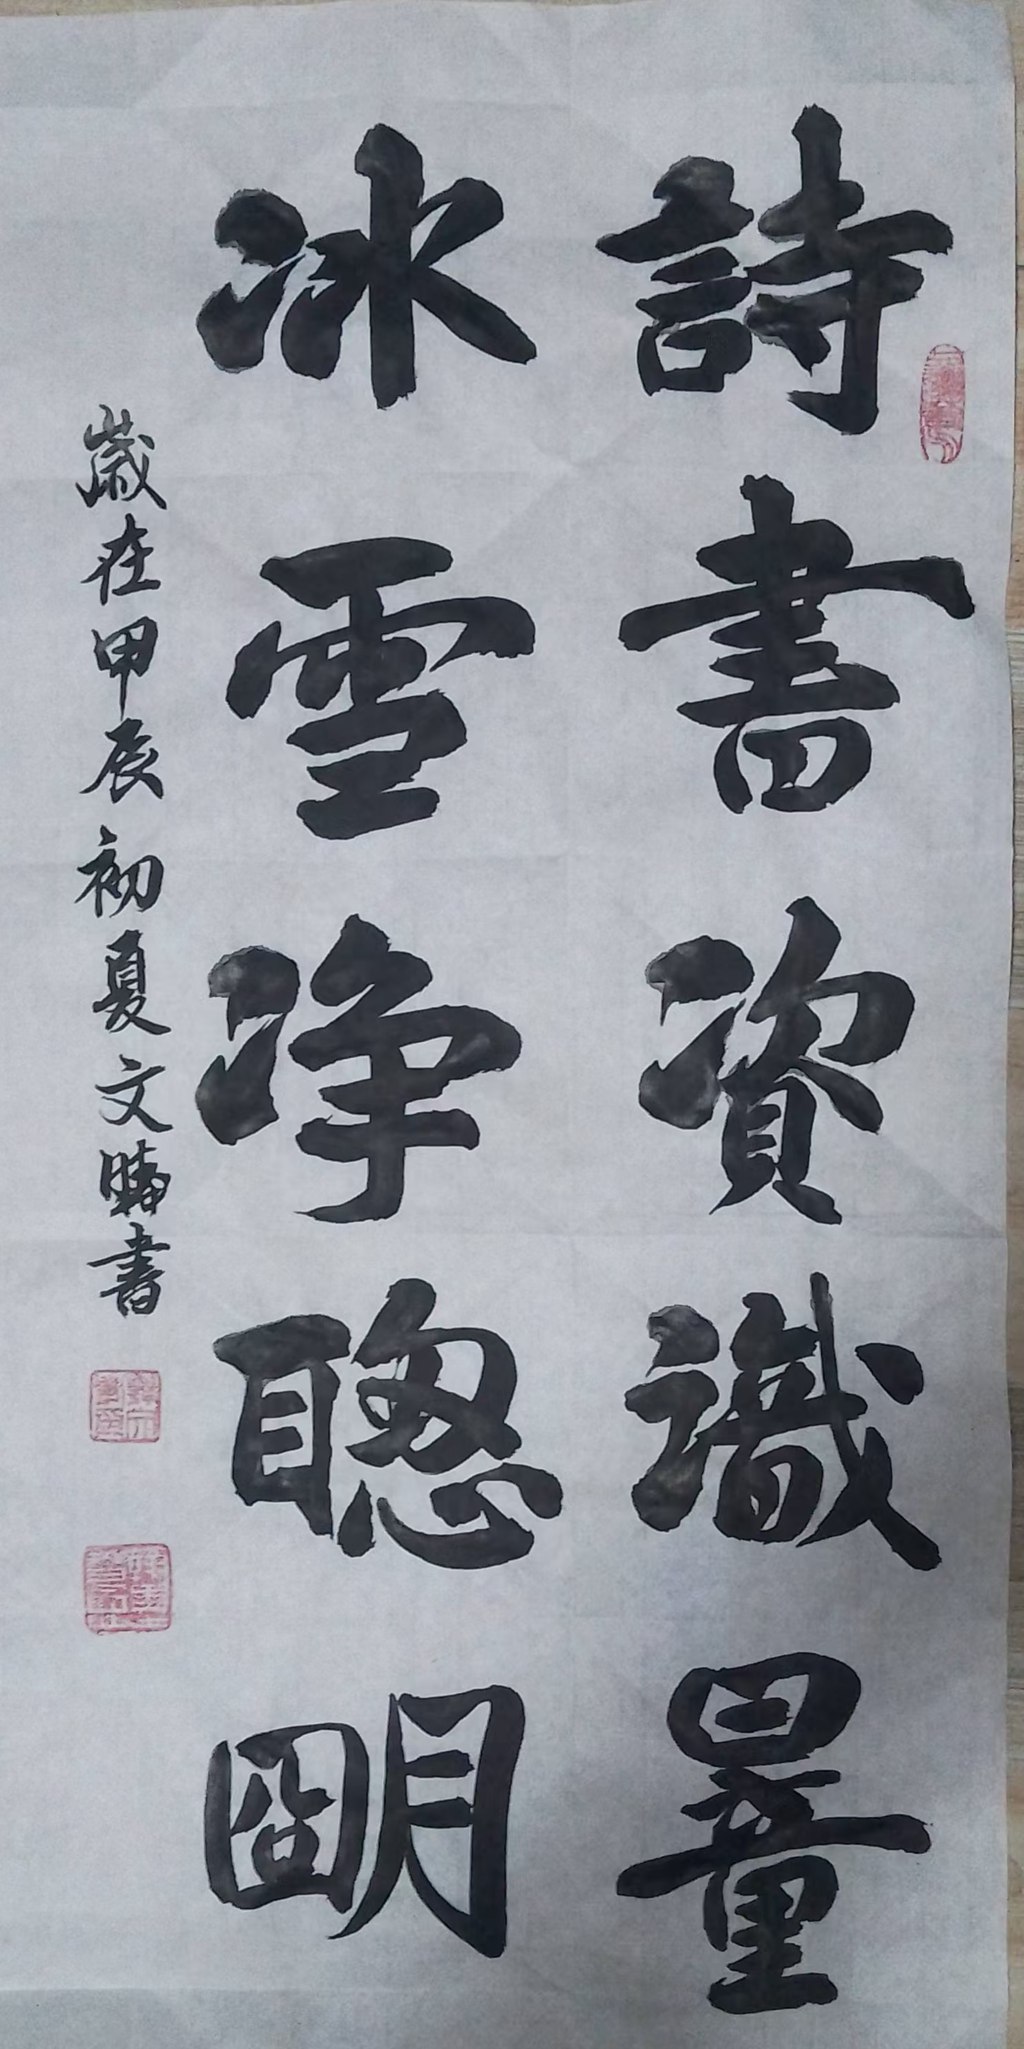 詩書資識量
冰雪凈聰朙
歲在甲辰初夏文疇書